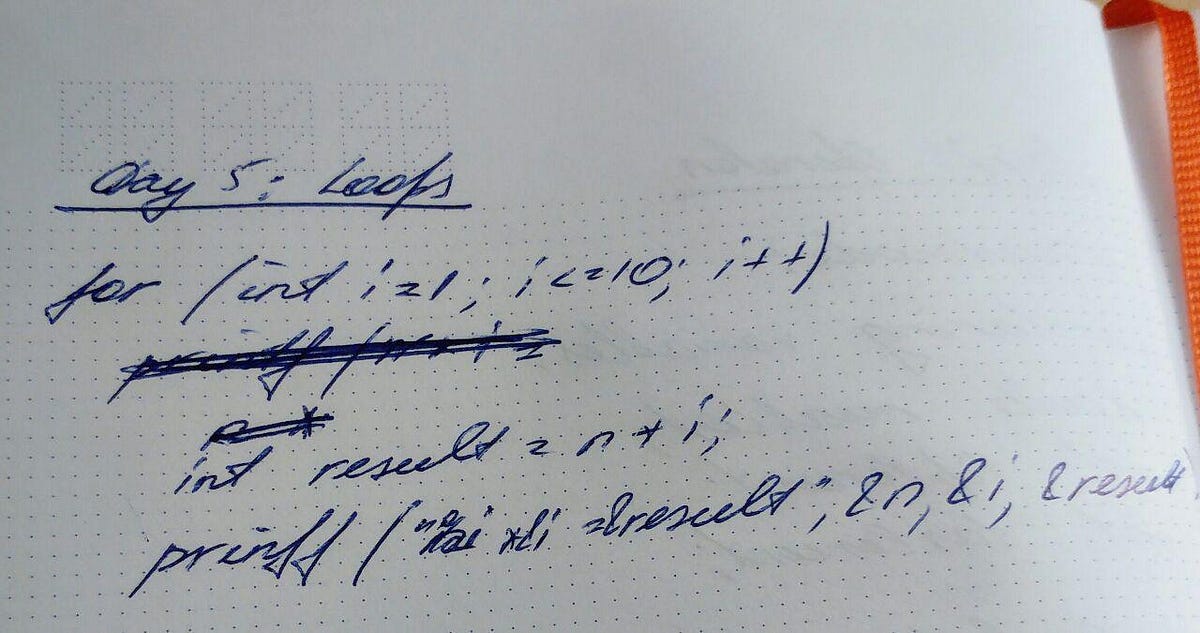 Day 5: Loops
for (int i=1; i<=10; i++)
int result = n * i;
printf (" &i =&result", &n, &i, &result